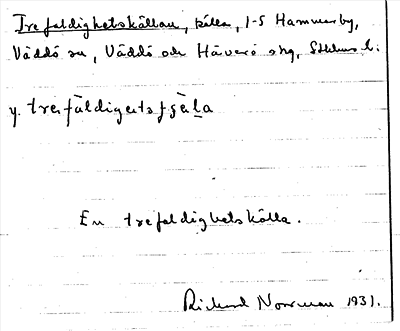 Trefaldighetskällan, källa, 1-5 Hammarby,
Väddö sn, Väddö och Häverö shg, Sthlms l.
y. trefäldigetsçäla
En trefaldighetskälla.
Rickard Norrman 1931.